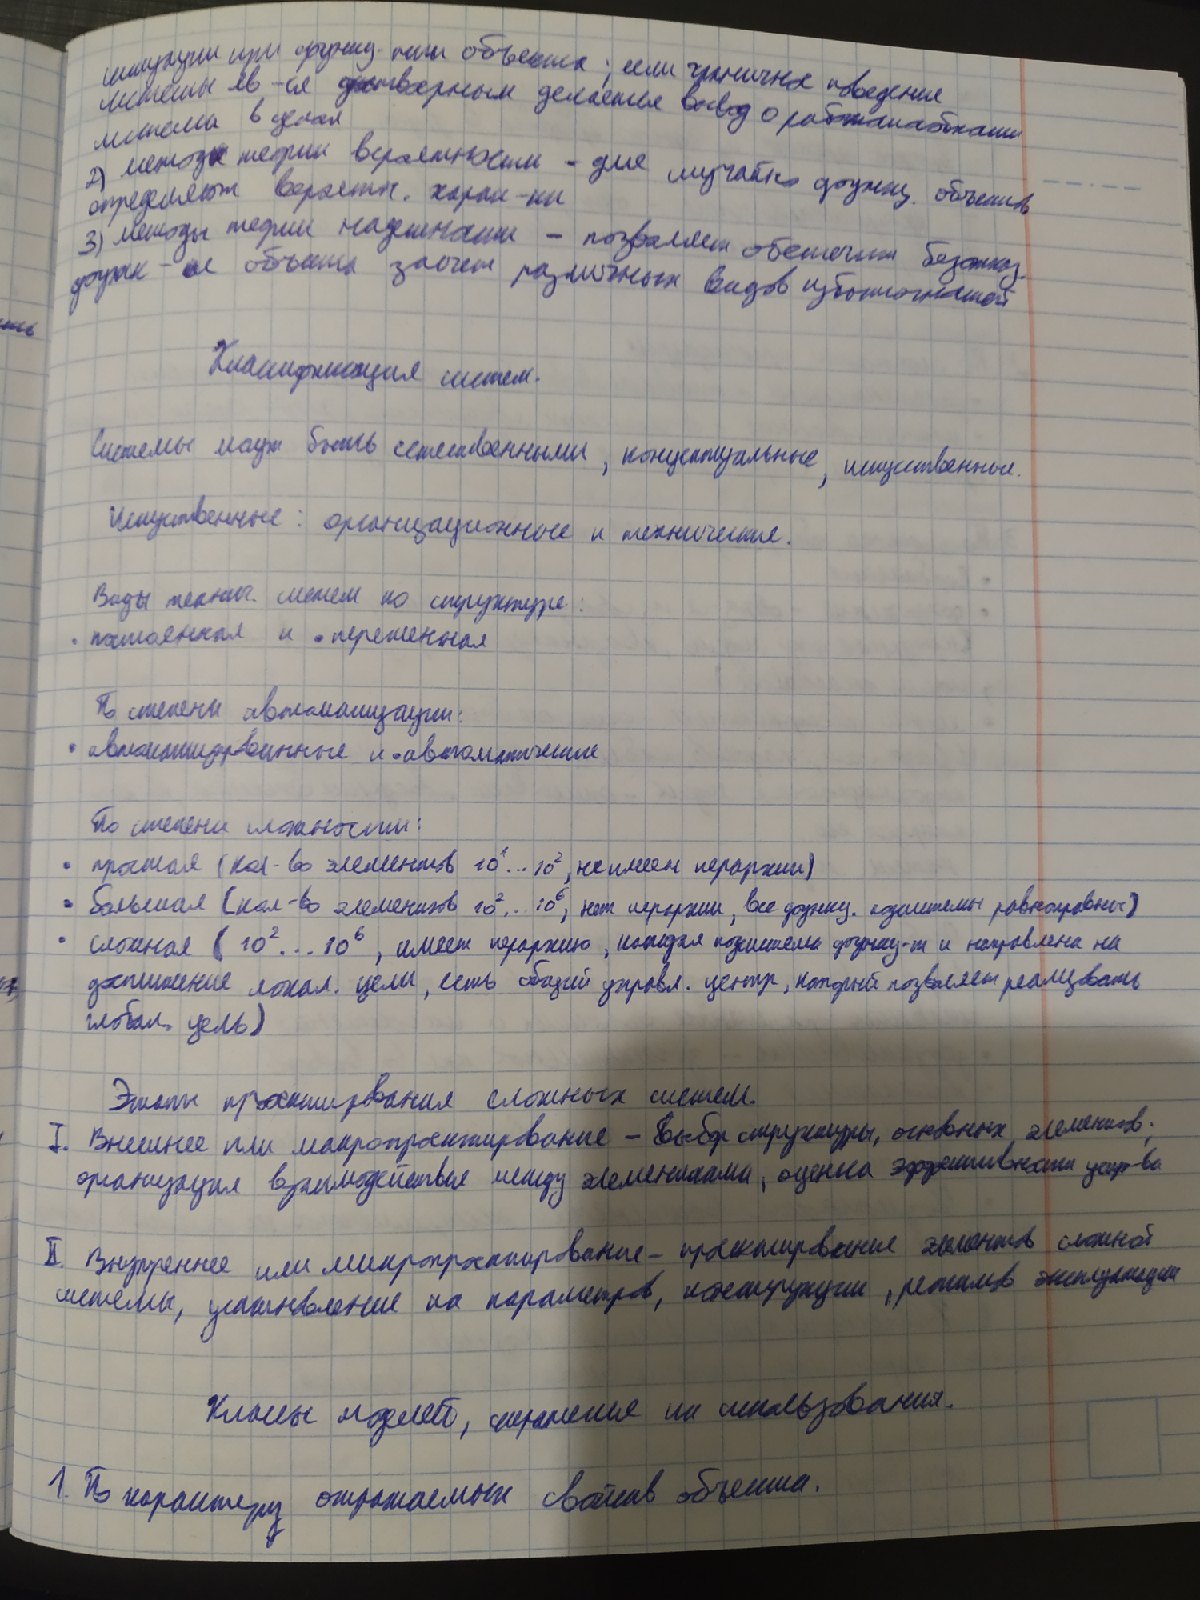 ситуации при функц-нии объекта; если граничное поведение
системы яв-ся достоверным делается вывод о работоспособности
системы в целом
2) методы теории вероятности - для случайно функц. объектов
определяют вероятн. харак-ки
3) методы теории надежности - позволяет обеспечить безотказ.
функ-ие объекта засчет различных видов избыточностей
Классификация систем.
Системы могут быть естественными, концептуальные, искуственные.
Искуственные: организационные и технические.
Виды технич. систем по структуре:
• постоянная и • переменная
По степени автоматизации:
• автоматизированные и • автоматические
По степени сложности:
• простая (кол-во элементов 10¹...10², не имеет иерархии)
• большая (кол-во элементов 10²...10⁶, нет иерархии, все функц. подсистемы равноправны)
• сложная (10²...10⁶, имеет иерархию, каждая подсистема функц-т и направлена на
достижение локал. цели, есть общий управл. центр, который позволяет реализовать
глобал. цель)
Этапы проектирования сложных систем.
I. Внешнее или макропроектирование - выбор структуры, основных элементов,
организация взаимодействия между элементами, оценка эффективности устр-ва
II. Внутреннее или микропроектирование - проектирование элементов сложной
системы, установление их параметров, конструкции, режимов эксплуатации
Классы моделей, стратегия их использования.
1. По характеру отражаемых свойств объекта.